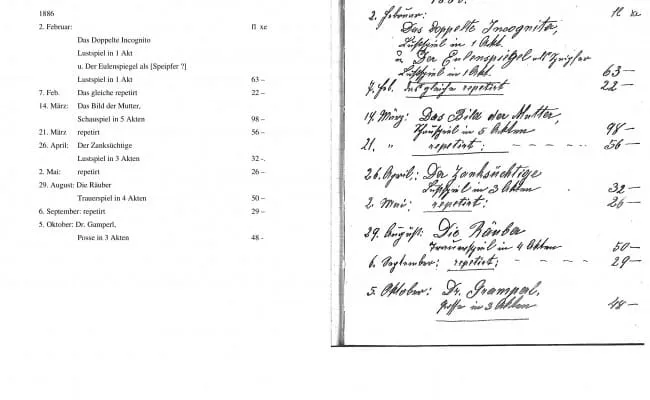 1886
2. Februar: fl xe
Das Doppelte Incognito
Lustspiel in 1 Akt
u. Der Eulenspiegel als [Speipfer ?]
Lustspiel in 1 Akt 63 –
7. Feb. Das gleiche repetirt 22 –
14. März: Das Bild der Mutter,
Schauspiel in 5 Akten 98 –
21. März repetirt 56 –
26. April: Der Zanksüchtige
Lustspiel in 3 Akten 32 -.
2. Mai: repetirt 26 –
29. August: Die Räuber
Trauerspiel in 4 Akten 50 –
6. September: repetirt 29 –
5. Oktober: Dr. Gamperl,
Posse in 3 Akten 48 -
2. Februar: fl xe
Das Doppelte Incognito,
Lustspiel in 1 Akt.
u. Der Eulenspiegel als
Lustspiel in 1 Akt. 63 —
7. Feb. das gleiche repetirt 22 —
14. März: Das Bild der Mutter,
Schauspiel in 5 Akten 98 —
21. " repetirt: – – – – 56 —
26. April: Der Zanksüchtige
Lustspiel in 3 Akten 32 —
2. Mai: repetirt: 26 —
29. August: Die Räuber
Trauerspiel in 4 Akten 50 —
6. September: repetirt; – – – – 29 —
5. Oktober: Dr. Gramperl,
Posse in 3 Akten 48 —